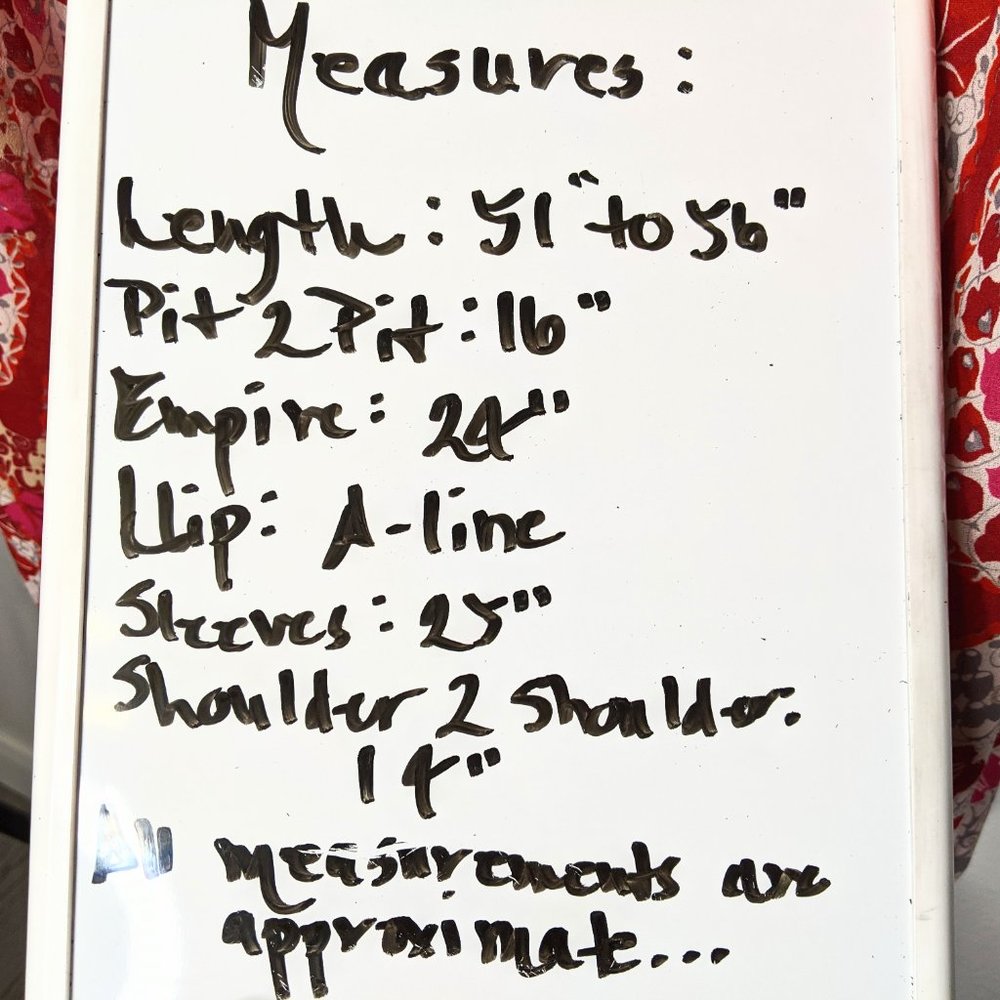 Measures:
Length: 51" to 56"
Pit 2 Pit: 16"
Empire: 24"
Hip: A-line
Sleeves: 25"
Shoulder 2 Shoulder:
14"
All measurements are
approximate...